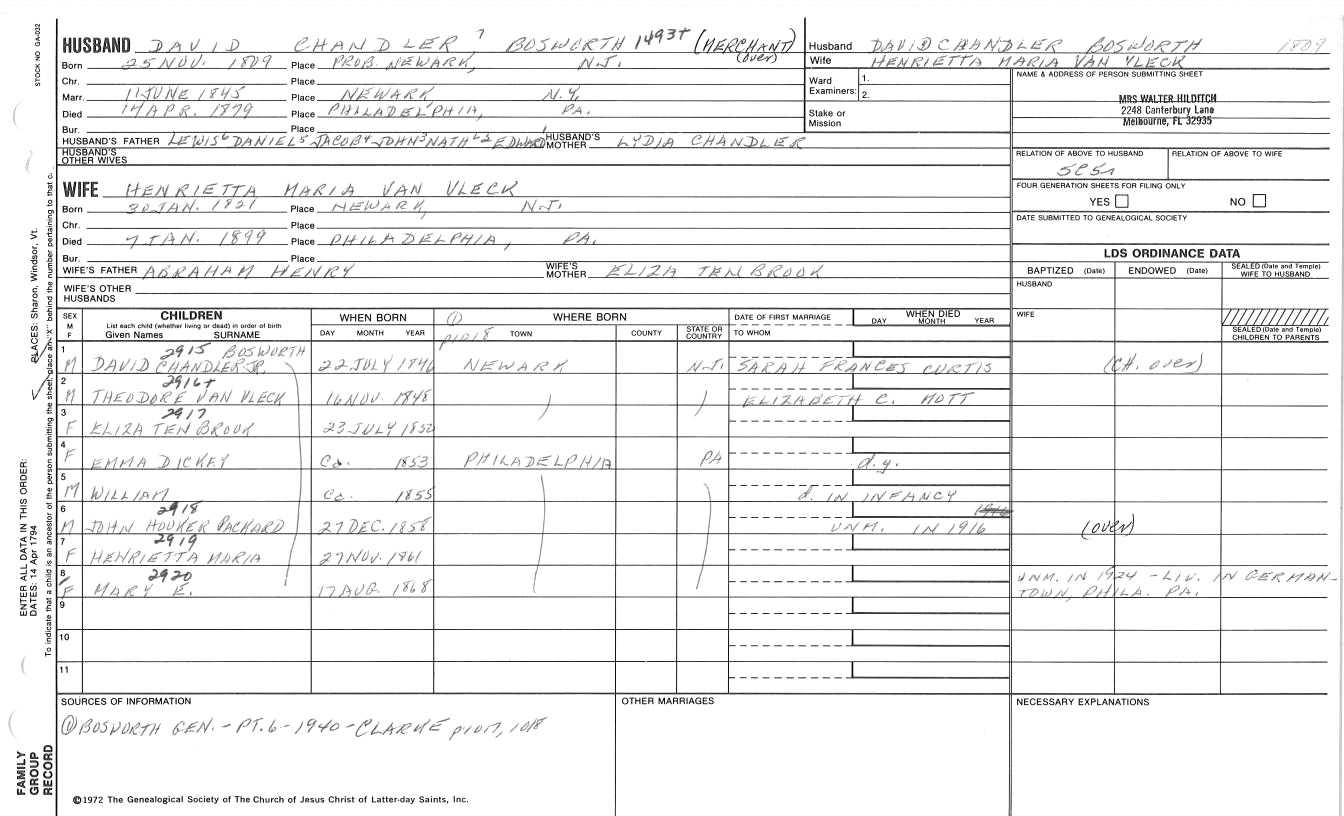 STOCK NO. GA-032
HUSBAND DAVID CHANDLER 7 BOSWORTH 1493+ (MERCHANT) (over)
Born 25 NOV. 1809 Place PROB. NEWARK, N.J.
Chr. Place
Marr. 11 JUNE 1845 Place NEWARK N.Y.
Died 14 APR. 1879 Place PHILADELPHIA, PA.
Bur. Place
HUSBAND'S FATHER LEWIS 6 DANIEL 5 JACOB 4 JOHN 3 NATH'L 2 EDWARD 1 HUSBAND'S MOTHER LYDIA CHANDLER
HUSBAND'S OTHER WIVES
Husband DAVID CHANDLER BOSWORTH 1809
Wife HENRIETTA MARIA VAN VLECK
Ward Examiners: 1.
2.
Stake or Mission
NAME & ADDRESS OF PERSON SUBMITTING SHEET
MRS WALTER HILDITCH
2248 Canterbury Lane
Melbourne, FL 32935
RELATION OF ABOVE TO HUSBAND RELATION OF ABOVE TO WIFE
FOUR GENERATION SHEETS FOR FILING ONLY
YES NO
DATE SUBMITTED TO GENEALOGICAL SOCIETY
WIFE HENRIETTA MARIA VAN VLECK
Born 30 JAN. 1821 Place NEWARK, N.J.
Chr. Place
Died 7 JAN. 1899 Place PHILADELPHIA, PA.
Bur. Place
WIFE'S FATHER ABRAHAM HENRY WIFE'S MOTHER ELIZA TEN BROOK
WIFE'S OTHER HUSBANDS
LDS ORDINANCE DATA
BAPTIZED (Date) ENDOWED (Date) SEALED (Date and Temple) WIFE TO HUSBAND
HUSBAND
WIFE
SEALED (Date and Temple) CHILDREN TO PARENTS
SEX M F CHILDREN WHEN BORN WHERE BORN DATE OF FIRST MARRIAGE WHEN DIED
List each child (whether living or dead) in order of birth
Given Names SURNAME DAY MONTH YEAR ① p1018 TOWN COUNTY STATE OR COUNTRY TO WHOM DAY MONTH YEAR
1 2915 BOSWORTH
M DAVID CHANDLER JR. 22 JULY 1846 NEWARK N.J. SARAH FRANCES CURTIS (CH. over)
2 2916+
M THEODORE VAN VLECK 16 NOV. 1848 ELIZABETH C. MOTT
3 2917
F ELIZA TEN BROOK 23 JULY 1850
4
F EMMA DICKEY Ca. 1853 PHILADELPHIA PA d.y.
5
M WILLIAM Ca. 1855 d. IN INFANCY
6 2918 1916
M JOHN HOOKER PACKARD 27 DEC. 1858 UNM. IN 1916 (over)
7 2919
F HENRIETTA MARIA 27 NOV. 1861
8 2920
F MARY E. 17 AUG. 1868 UNM. IN 1924 - LIV. IN GERMAN-
TOWN, PHILA. PA.
9
10
11
SOURCES OF INFORMATION
① BOSWORTH GEN. - PT. 6 - 1940 - CLARKE p1017, 1018
OTHER MARRIAGES
NECESSARY EXPLANATIONS
©1972 The Genealogical Society of The Church of Jesus Christ of Latter-day Saints, Inc.
FAMILY GROUP RECORD
ENTER ALL DATA IN THIS ORDER:
DATES: 14 Apr 1794
PLACES: Sharon, Windsor, Vt.
To indicate that a child is an ancestor of the person submitting the sheet, place an "X" behind the number pertaining to that c.